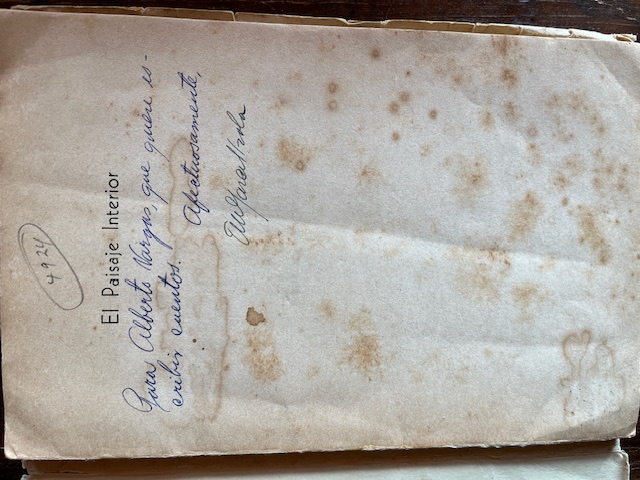 4924
El Paisaje Interior
Para Alberto Vargas, que quiere es-
cribir cuentos.
Afectuosamente,